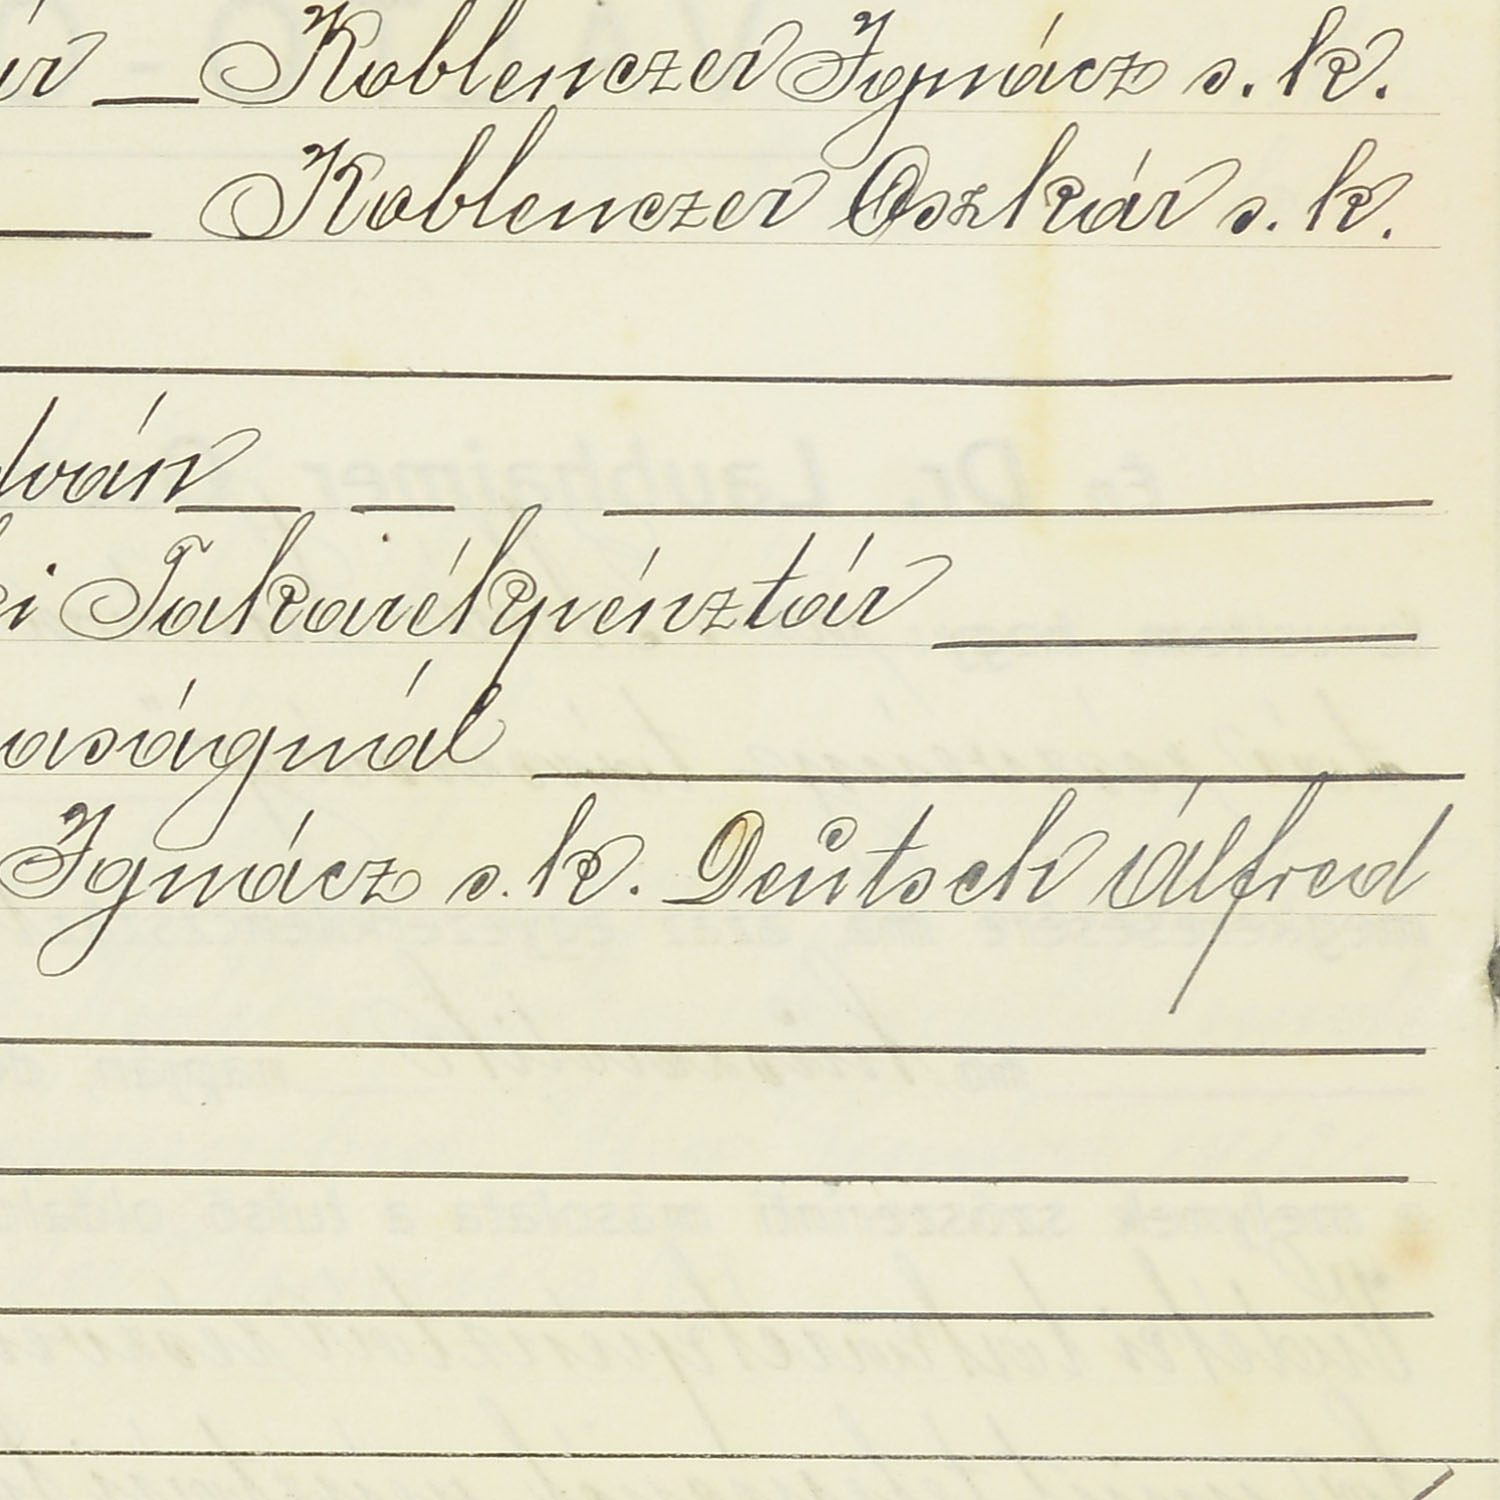 ár — Koblenczer Ignácz s. k.
Koblenczer Oszkár s. k.
ván
ki Takarékpénztár
aságnál
Ignácz s. k. Deutsch Alfréd